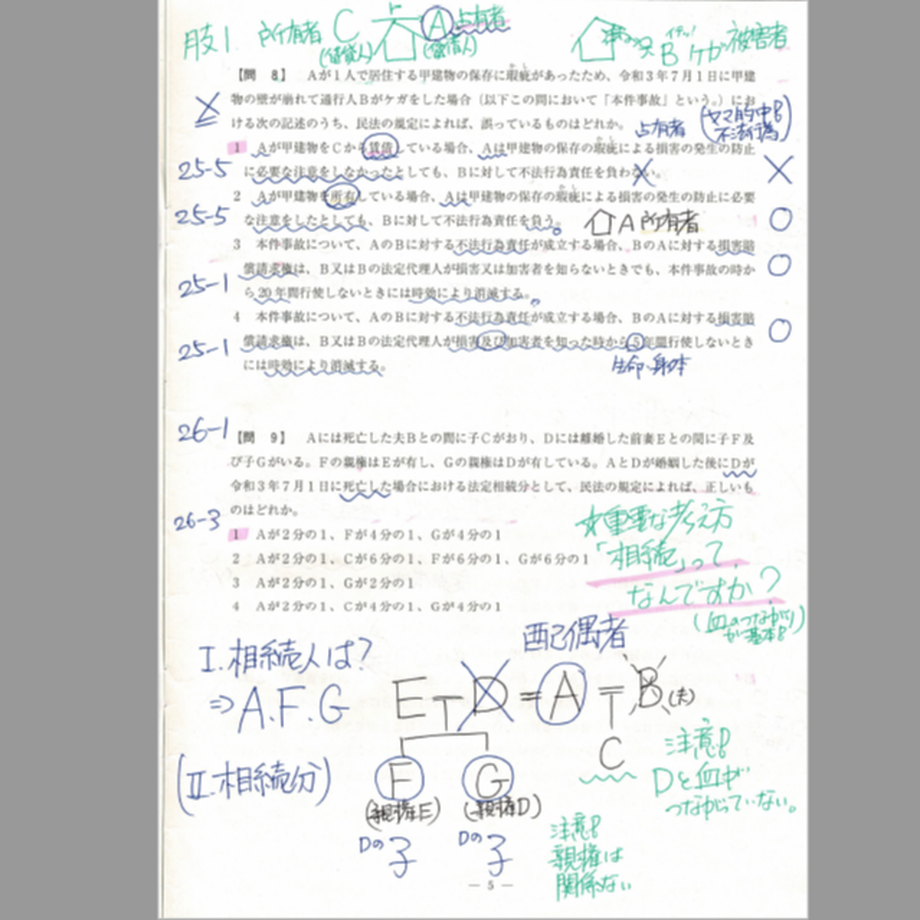 肢1. 所有者 C 占 A 占有者
(賃貸人) (賃借人)
B ケガ 被害者
【問 8】 Aが1人で居住する甲建物の保存に瑕疵があったため、令和3年7月1日に甲建
物の壁が崩れて通行人Bがケガをした場合(以下この問において「本件事故」という。)にお
ける次の記述のうち、民法の規定によれば、誤っているものはどれか。
占有者 (ヤマ的中!! 不法行為)
1 Aが甲建物をCから賃借している場合、Aは甲建物の保存の瑕疵による損害の発生の防止
に必要な注意をしなかったとしても、Bに対して不法行為責任を負わない。
25-5
×
2 Aが甲建物を所有している場合、Aは甲建物の保存の瑕疵による損害の発生の防止に必要
な注意をしたとしても、Bに対して不法行為責任を負う。
25-5
A 所有者
○
3 本件事故について、AのBに対する不法行為責任が成立する場合、BのAに対する損害賠
償請求権は、B又はBの法定代理人が損害又は加害者を知らないときでも、本件事故の時か
ら20年間行使しないときには時効により消滅する。
25-1
○
4 本件事故について、AのBに対する不法行為責任が成立する場合、BのAに対する損害賠
償請求権は、B又はBの法定代理人が損害及び加害者を知った時から5年間行使しないとき
には時効により消滅する。
25-1
○
生命・身体
26-1
【問 9】 Aには死亡した夫Bとの間に子Cがおり、Dには離婚した前妻Eとの間に子F及
び子Gがいる。Fの親権はEが有し、Gの親権はDが有している。AとDが婚姻した後にDが
令和3年7月1日に死亡した場合における法定相続分として、民法の規定によれば、正しいも
のはどれか。
26-3
1 Aが2分の1、Fが4分の1、Gが4分の1
2 Aが2分の1、Cが6分の1、Fが6分の1、Gが6分の1
3 Aが2分の1、Gが2分の1
4 Aが2分の1、Cが4分の1、Gが4分の1
☆重要な考え方
「相続」って、
なんですか?
(血のつながりが基本!!)
I.相続人は?
⇒A.F.G
(II.相続分)
配偶者
E D = A B (夫)
C
F G
(親権E) (親権D)
Dの子 Dの子
注意!!
Dと血が
つながっていない。
注意!!
親権は
関係ない
— 5 —